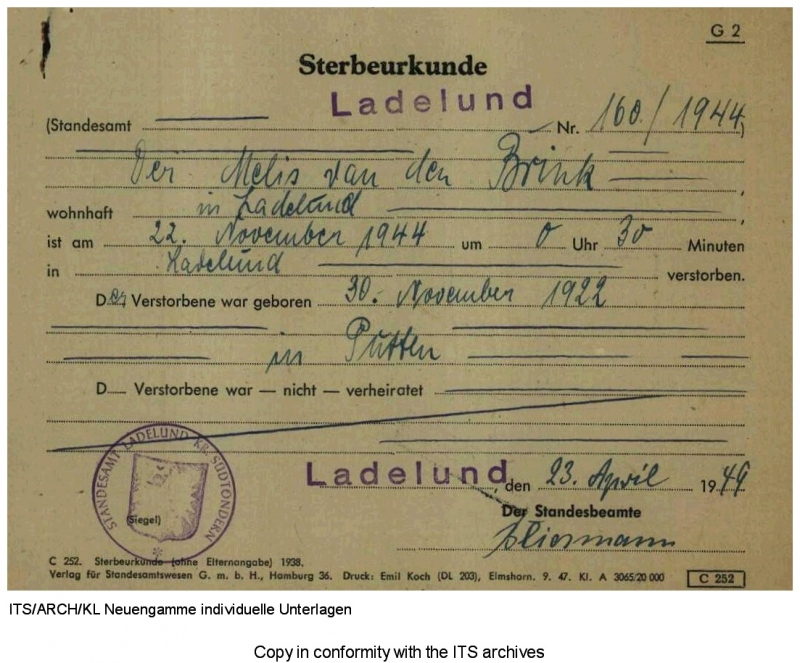 G 2
Sterbeurkunde
Ladelund
(Standesamt Nr. 160/1944)
Der Melis van den Brink
wohnhaft in Ladelund
ist am 22. November 1944 um 0 Uhr 30 Minuten
in Ladelund verstorben.
Der Verstorbene war geboren 30. November 1922
in Putten
D Verstorbene war — nicht — verheiratet
Ladelund, den 23. April 1949
Der Standesbeamte
STANDESAMT LADELUND KR. SÜDTONDERN
(Siegel)
C 252. Sterbeurkunde (ohne Elternangabe) 1938.
Verlag für Standesamtswesen G. m. b. H., Hamburg 36. Druck: Emil Koch (DL 203), Elmshorn. 9. 47. Kl. A 3065/20 000
C 252
ITS/ARCH/KL Neuengamme individuelle Unterlagen
Copy in conformity with the ITS archives